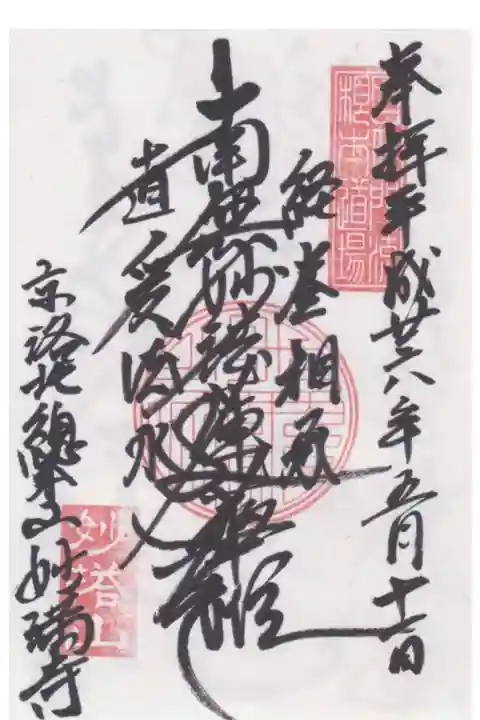 奉拝平成廿六年五月十一日
根本道場
経巻相承
南無妙法蓮華経
直受法水
京洛北總本山妙満寺
妙塔山